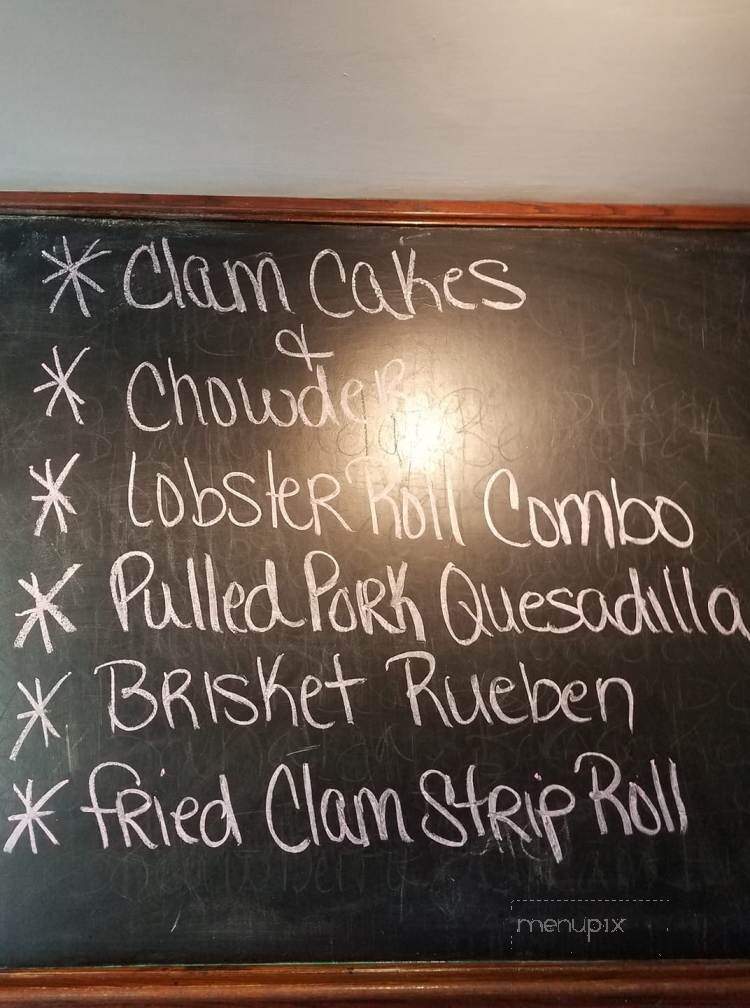 * Clam Cakes
&
* Chowder
* Lobster Roll Combo
* Pulled Pork Quesadilla
* Brisket Rueben
* Fried Clam Strip Roll
menupix